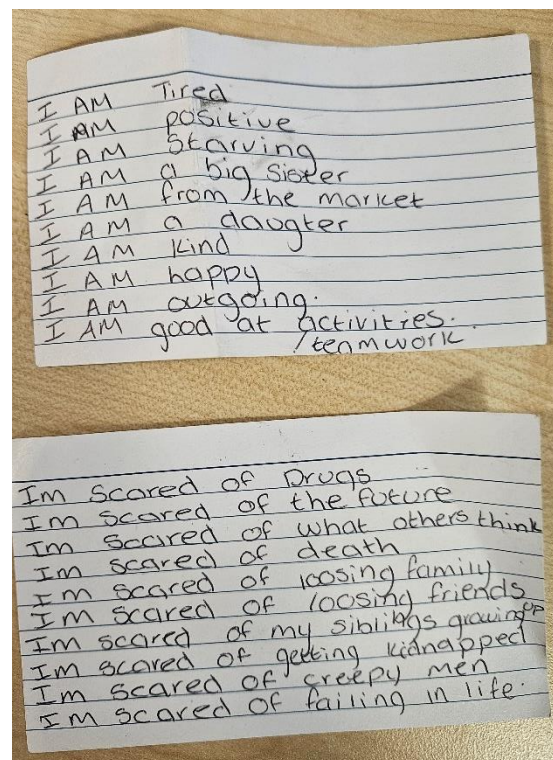 I AM Tired
I AM positive
I AM Starving
I AM a big sister
I AM from the market
I AM a daugter
I AM kind
I AM happy
I AM outgoing.
I AM good at activities.
/teamwork.
Im scared of Drugs
Im scared of the future
Im scared of what others think
Im scared of death
Im scared of loosing family
Im scared of loosing friends
Im scared of my siblings growing up
Im scared of getting kidnapped
Im scared of creepy men
Im scared of failing in life.